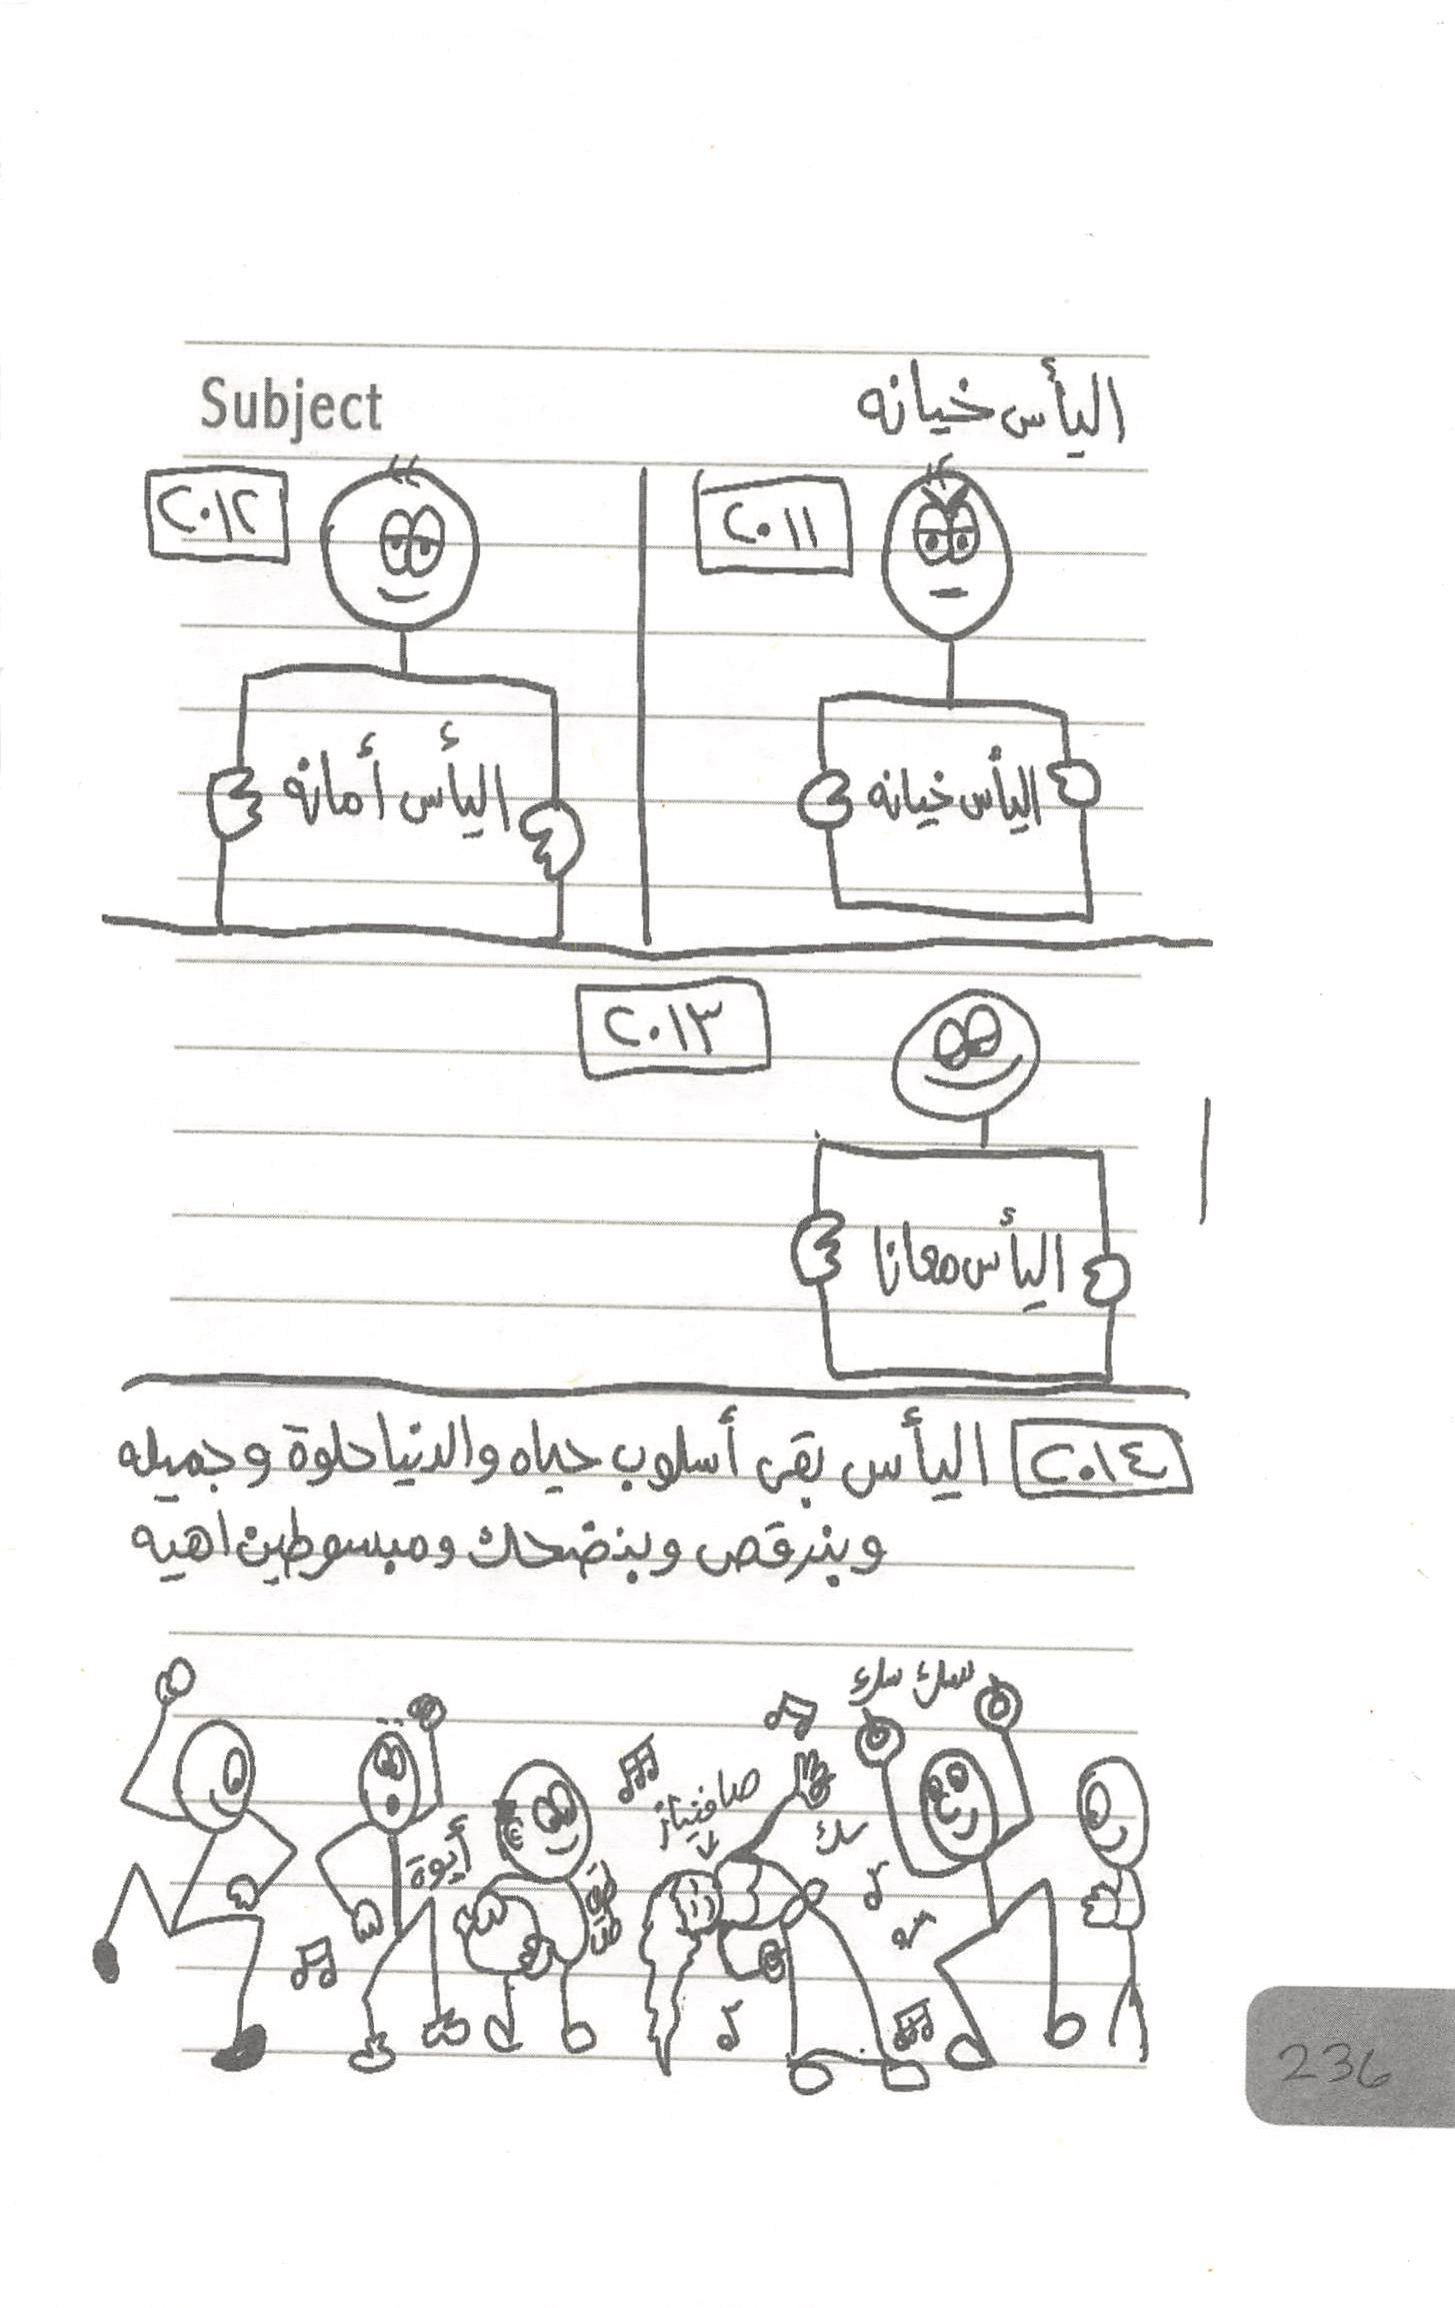 Subject
اليأس خيانه
٢٠١١
اليأس خيانه
٢٠١٢
اليأس أمانه
٢٠١٣
اليأس معانا
٢٠١٤ اليأس بقى أسلوب حياه والدنيا حلوة وجميله
وبنرقص وبنضحك ومبسوطين اهيه
سك سك
سك
صافيناز
أيوة
236